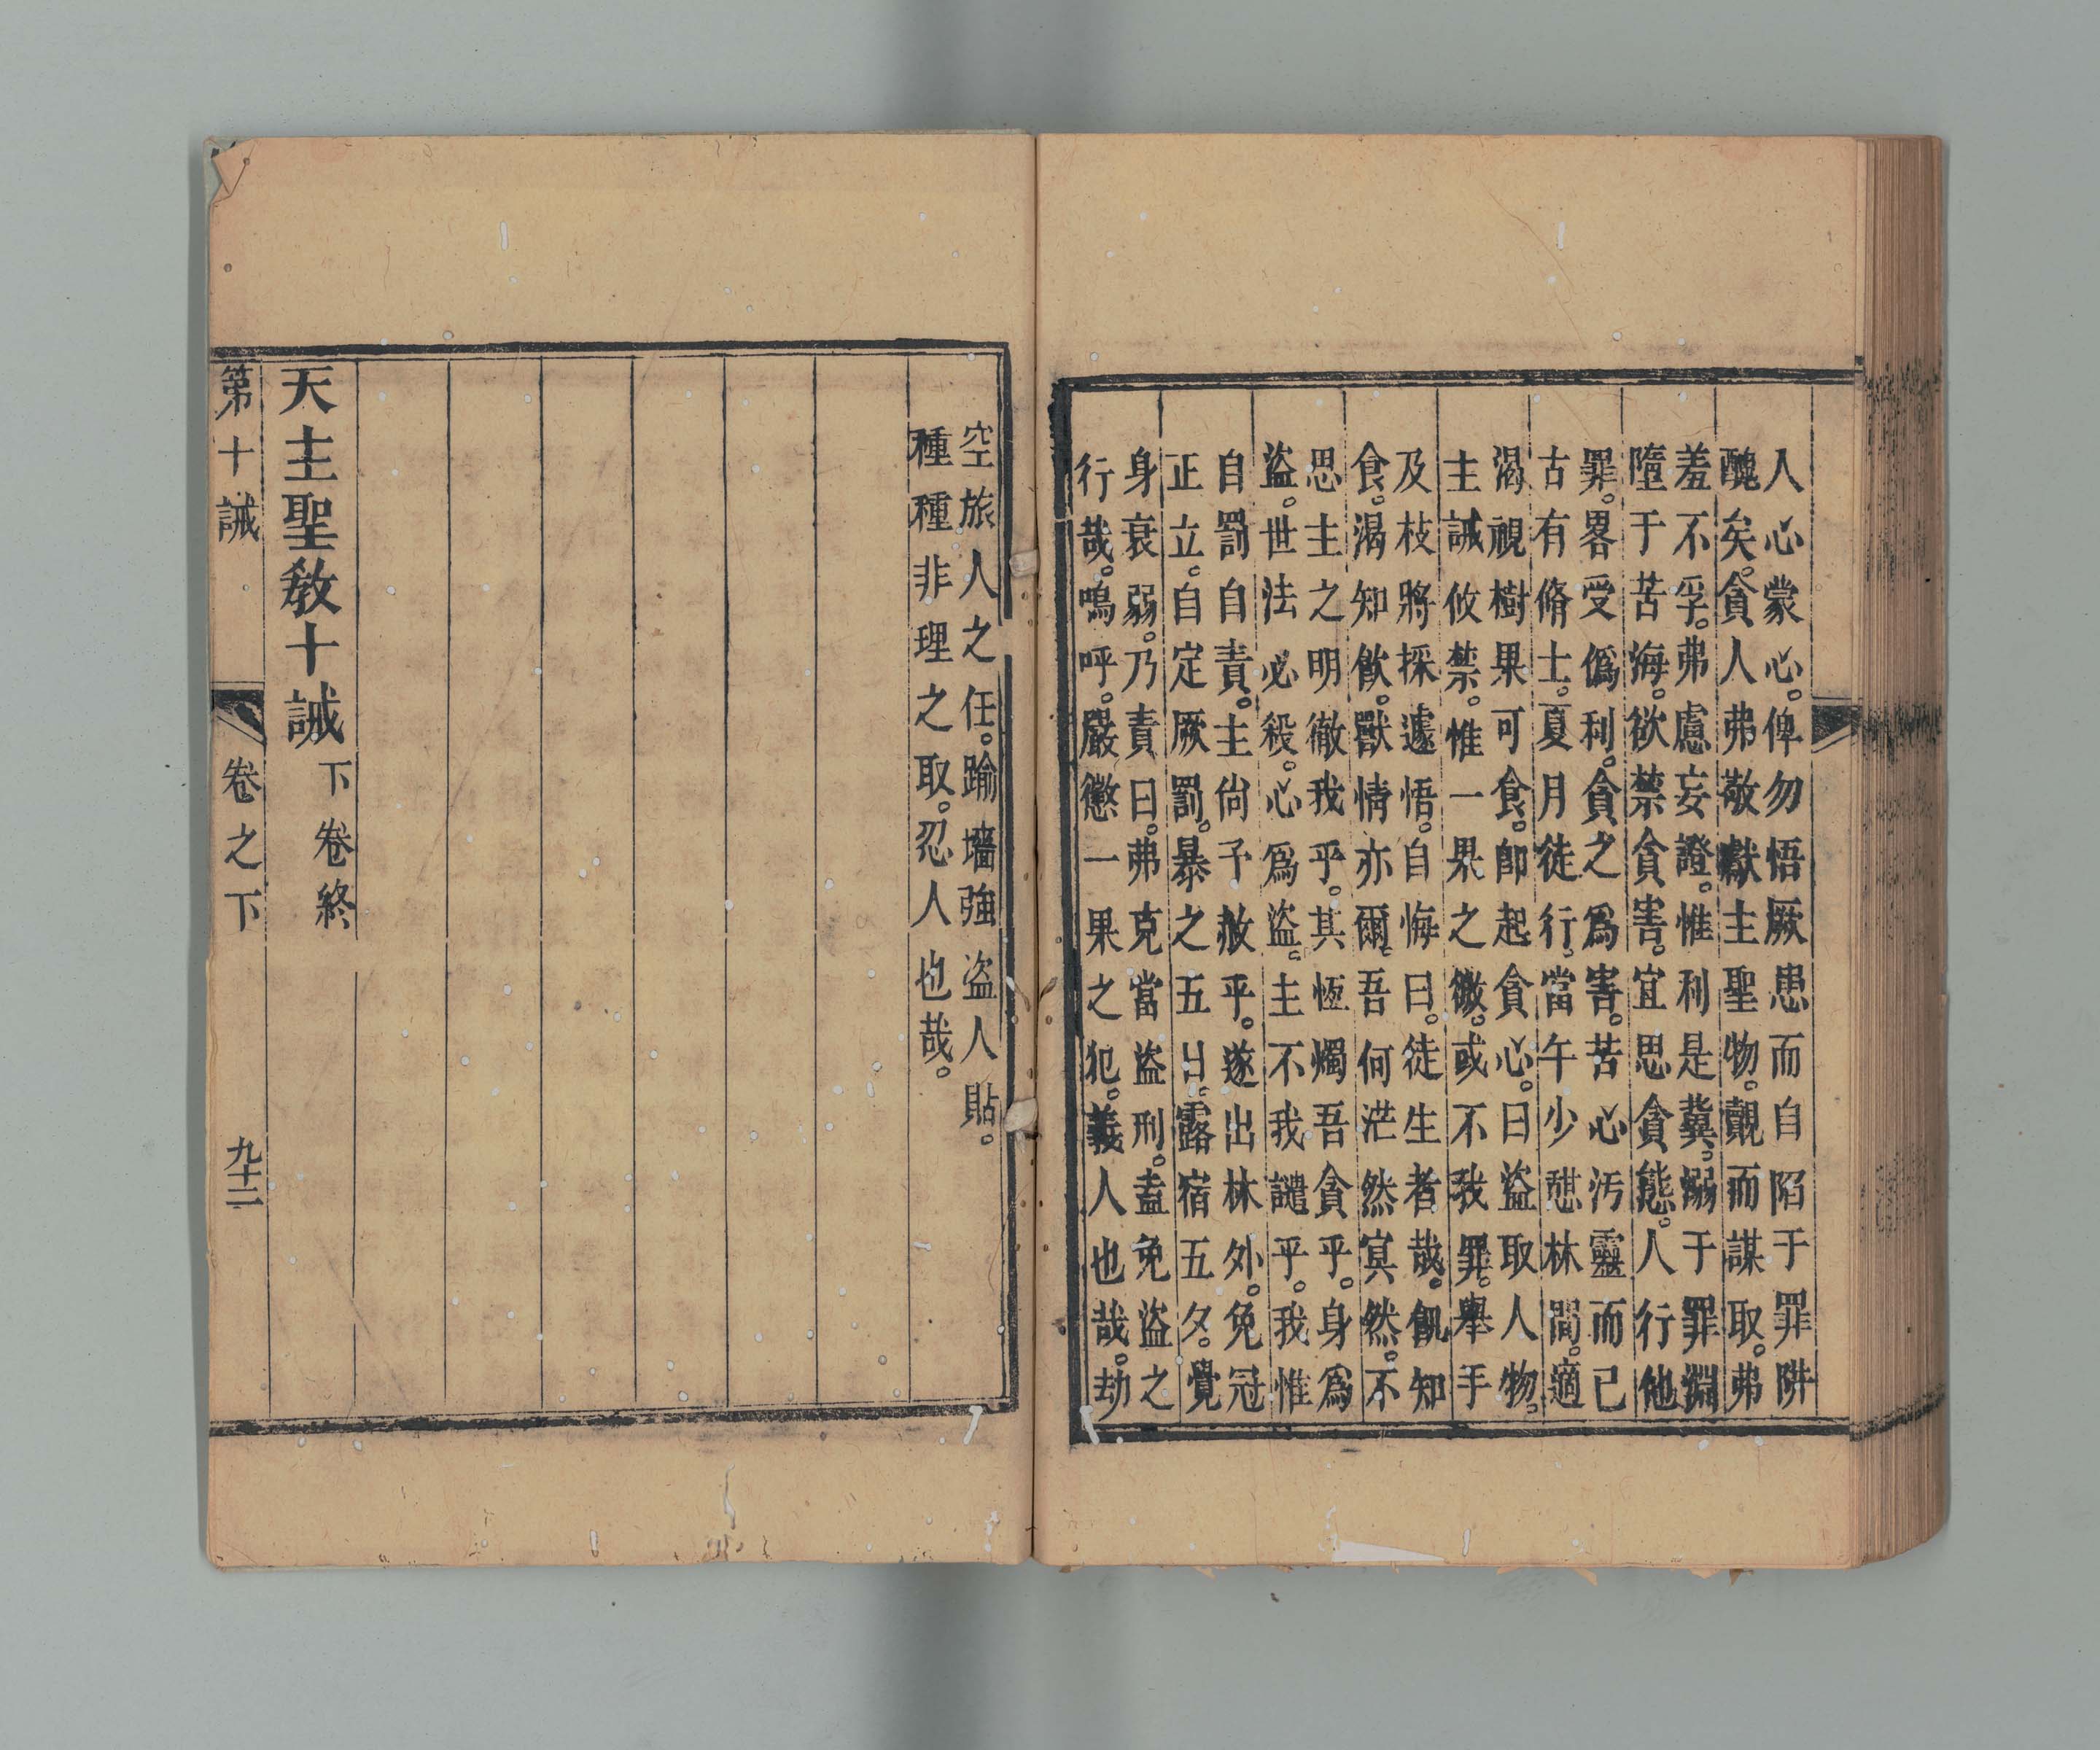 人心蒙心。俾勿悟厥患而自陷于罪阱
醜矣。貪人弗敬獻主聖物。覿而謀取。弗
羞不孚。弗慮妄證。惟利是冀。溺于罪淵
墮于苦海。欲禁貪害。宜思貪態。人行他
罪。畧受僞利。貪之爲害。苦心汚靈而已
古有脩士。夏月徒行。當午少憇林間。適
渴視樹果可食。卽起貪心。曰盜取人物。
主誡攸禁。惟一果之微。或不我罪。舉手
及枝將採遽悟。自悔曰。徒生者哉。飢知
食。渴知飲。獸情亦爾。吾何茫然冥然。不
思主之明徹我乎。其恆燭吾貪乎。身爲
盜。世法必殺。心爲盜。主不我譴乎。我惟
自罰自責。主尙予赦乎。遂出林外。免冠
正立。自定厥罰。暴之五日。露宿五夕。覺
身衰弱。乃責曰。弗克當盜刑。盍免盜之
行哉。嗚呼。嚴懲一果之犯。義人也哉。劫
空旅人之任。踰墻強盜人貼。
種種非理之取。忍人也哉。
天主聖教十誡 下卷終
第十誡 卷之下 九十二